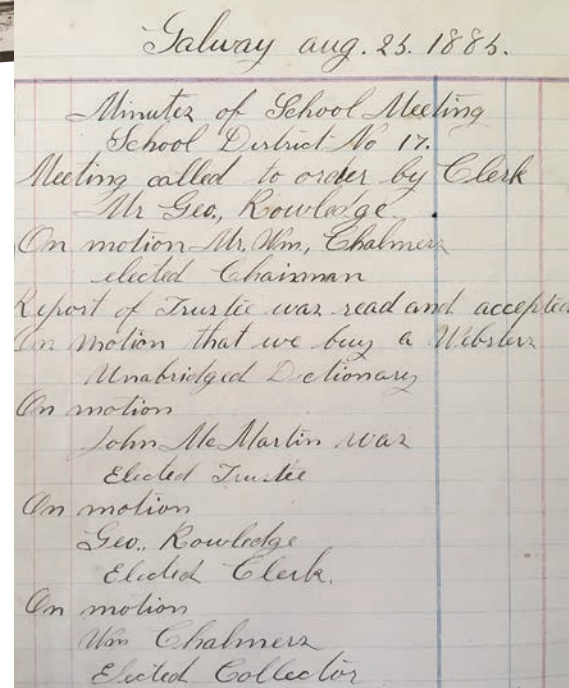 Galway aug. 25. 1885.
Minutes of School Meeting
School District No 17.
Meeting called to order by Clerk
Mr Geo., Rowledge.
On motion Mr. Wm, Chalmers
elected Chairman
Report of Trustee was read and accepted
On motion that we buy a Websters
Unabridged Dictionary
On motion
John McMartin was
Elected Trustee
On motion
Geo.. Rowledge
Elected Clerk.
On motion
Wm Chalmers
Elected Collector